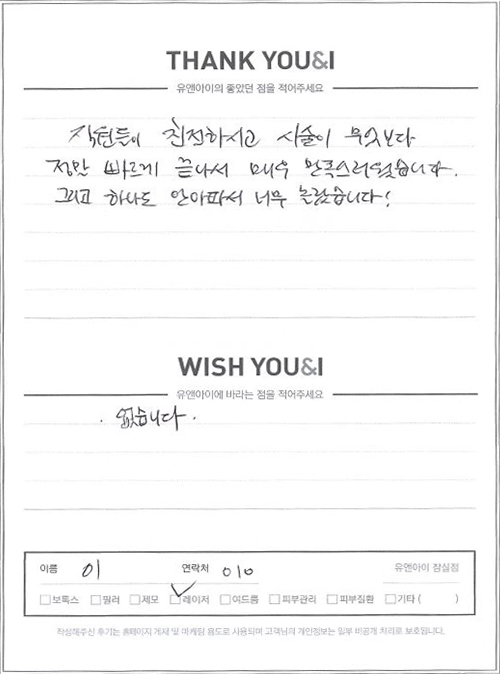 THANK YOU&I
유앤아이의 좋았던 점을 적어주세요
직원들이 친절하시고 시술이 무엇보다
정말 빠르게 끝나서 매우 만족스러웠습니다.
그리고 하나도 안아파서 너무 놀랐습니다!
WISH YOU&I
유앤아이에 바라는 점을 적어주세요
· 없습니다.
이름 이 연락처 010 유앤아이 잠실점
보톡스 필러 제모 레이저 여드름 피부관리 피부질환 기타 ( )
작성해주신 후기는 홈페이지 게재 및 마케팅 용도로 사용되며 고객님의 개인정보는 일부 비공개 처리로 보호됩니다.